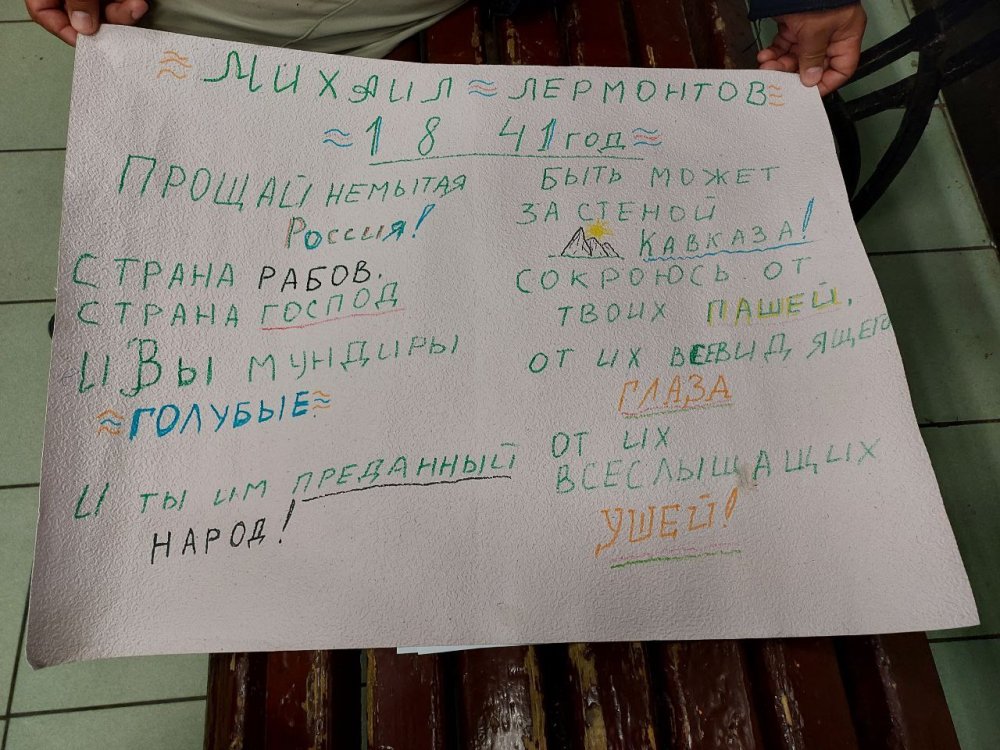 МИХАИЛ ЛЕРМОНТОВ
1841 ГОД
ПРОЩАЙ НЕМЫТАЯ
РОССИЯ!
СТРАНА РАБОВ.
СТРАНА ГОСПОД
И ВЫ МУНДИРЫ
ГОЛУБЫЕ
И ТЫ ИМ ПРЕДАННЫЙ
НАРОД!
БЫТЬ МОЖЕТ
ЗА СТЕНОЙ
КАВКАЗА!
СОКРОЮСЬ ОТ
ТВОИХ ПАШЕЙ,
ОТ ИХ ВСЕВИДЯЩЕГО
ГЛАЗА
ОТ ИХ
ВСЕСЛЫЩАЩИХ
УШЕЙ!